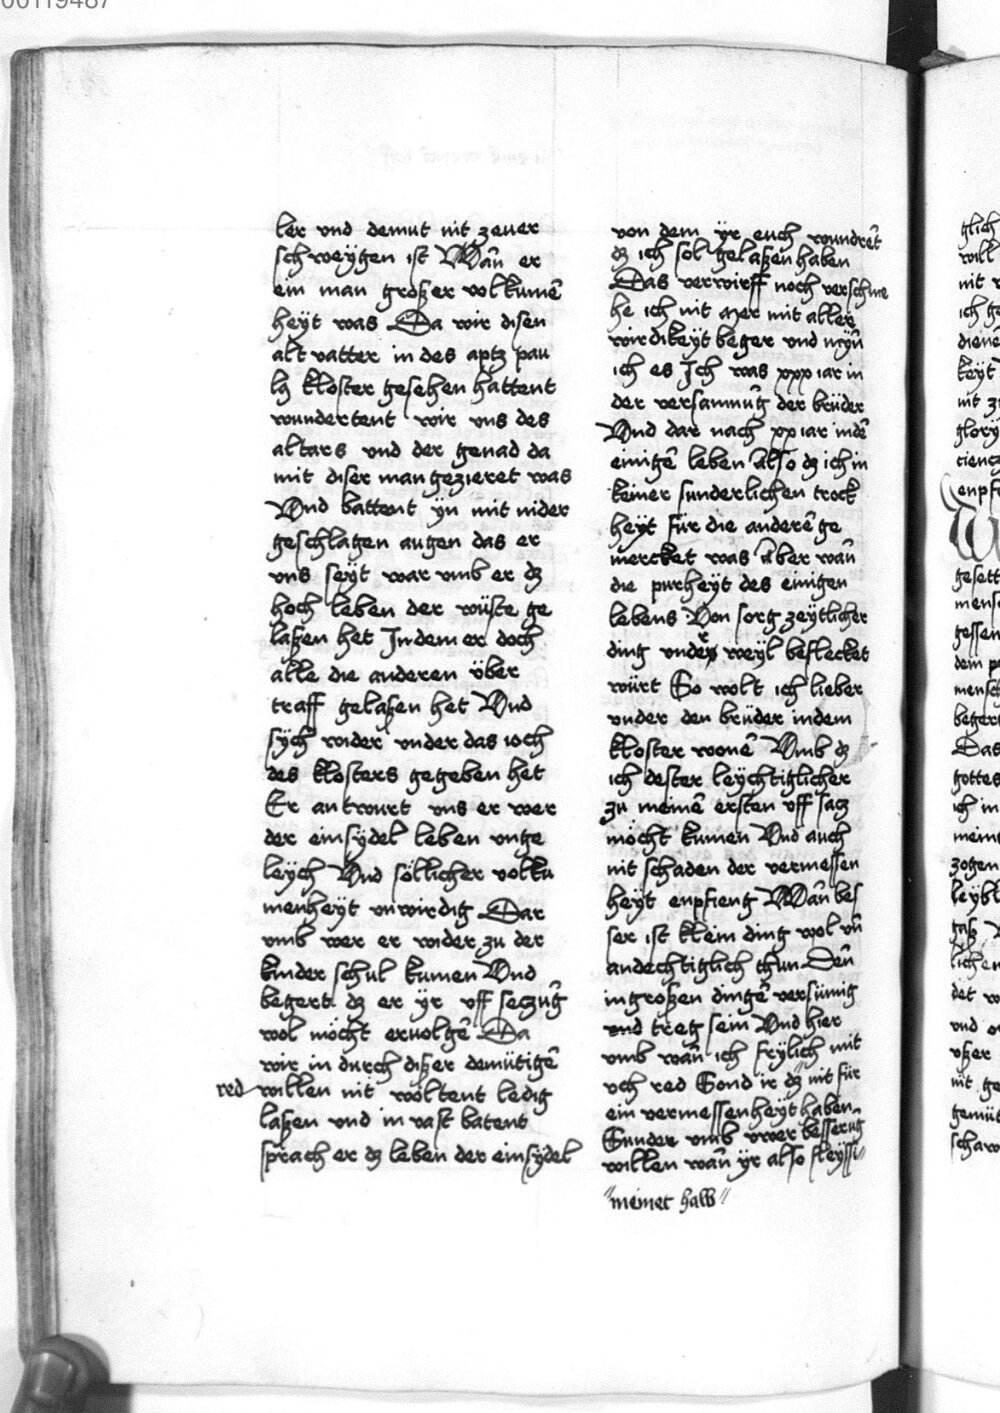 00119487
ler vnd demut nit zeuer
schweÿgen ist Wan̄ er
ein man großer volkumē
heÿt was Da wir disen
alt vatter in des aptz pau
ly kloster gesehen hattent
wundertent wir vns des
altars vnd der genad da
mit diser man gezieret was
Vnd battent ÿn mit nider
geschlagen augen das er
vns seÿt war vmb er dz
hoch leben der wüste ge
laßen het In dem er doch
alle die anderen über
traff gelaßen het Vnd
sÿch wider vnder das ioch
des klosters gegeben het
Er antwurt vns er wer
der einsÿdel leben vnge
leÿch Vnd söllicher volku
menheÿt vnwirdig Dar
vmb wer er wider zu der
kinder schul kumen Vnd
begert dz er ÿr vff saczūg
wol möcht ervolgē Da
wir in durch dißer demütigē
red willen nit wöltent ledig
laßen vnd in vast batent
sprach er dz leben der einsÿdel
von dem ÿr euch wundrēt
dz ich sol gelaßen haben
Das verwirff noch verschme
he ich nit mer mit aller
wirdikeÿt beger vnd mÿn̄
ich es Ich was xxx iar in
der versamnūg der brüder
Vnd dar nach xx iar indē
einigē leben Also dz ich in
keiner sunderlichen trock
heÿt für die anderē ge
mercket was Aber wan̄
die purheÿt des einigen
lebens Von sorg zeÿtlicher
ding vnder weÿl beflecket
würt So wolt ich lieber
vnder den brüder in dem
kloster wonē Vmb dz
ich dester leÿchtiglicher
zu meinē ersten vff sacz
möcht kumen Vnd auch
nit schaden der vermessen
heÿt enpfieng Wan̄ bes
ser ist klein ding wol vn̄
andechtiglich thun Den̄
in großen dingē versümig
vnd treg sein Vnd hier
vmb wan̄ ich frÿlich mit
vch red Sond ir dz nit für
ein vermessenheÿt haben
Sunder vmb vwer besserūg
willen wan̄ ÿr also fleÿssi
meinet halb